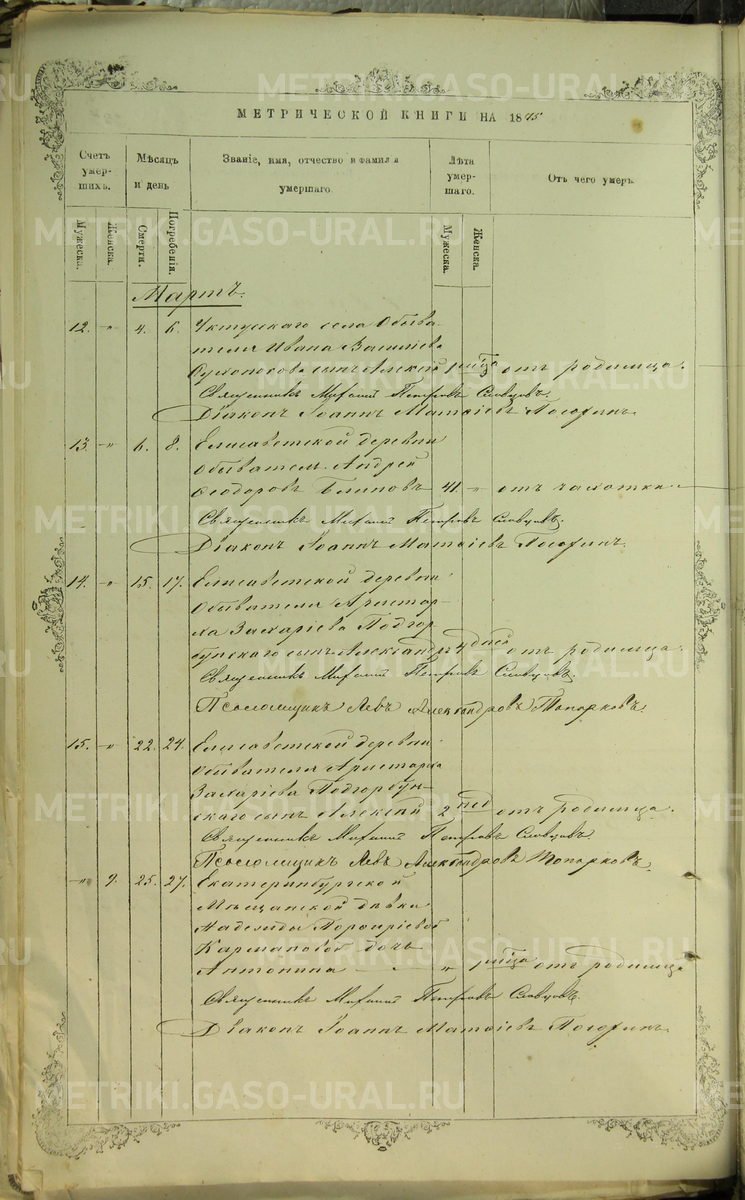 МЕТРИЧЕСКОЙ КНИГИ НА 1875
Счетъ умершихъ.
Мѣсяцъ и день
Званіе, имя, отчество и фамилія умершаго.
Лѣта умершаго.
Отъ чего умеръ.
Мужеска.
Женска.
Смерти.
Погребенія.
Мужеска.
Женска.
Мартъ.
12. " 4. 6. Уктусскаго села Обыва-
теля Ивана Василіева
сынъ Алексій 1 мѣсяца отъ родимца.
Священникъ Михаилъ Петровъ Словцовъ.
Діаконъ Іоаннъ Матѳіевъ
13. " 6. 8. Елисаветской деревни
обыватель Андрей
Ѳеодоровъ Блиновъ 41. " отъ чахотки.
Священникъ Михаилъ Петровъ Словцовъ.
Діаконъ Іоаннъ Матѳіевъ
14. " 15. 17. Елисаветской деревни
обывателя Аристар-
ха Захаріева Подгор-
бунскаго сынъ Александръ дней отъ родимца.
Священникъ Михаилъ Петровъ Словцовъ.
Псаломщикъ Левъ Александровъ Топорковъ.
15. " 22. 24. Елисаветской деревни
обывателя Аристарха
Захаріева Подгорбун-
скаго сынъ Алексій 2 нед отъ родимца.
Священникъ Михаилъ Петровъ Словцовъ.
Псаломщикъ Левъ Александровъ Топорковъ.
" 9. 25. 27. Екатеринбургской
Мѣщанской дѣвки
Надежды Порфиріевой
Кармановой дочь
Антонина " 1 мѣсяца отъ родимца
Священникъ Михаилъ Петровъ Словцовъ.
Діаконъ Іоаннъ Матѳіевъ
METRIKI.GASO-URAL.RU